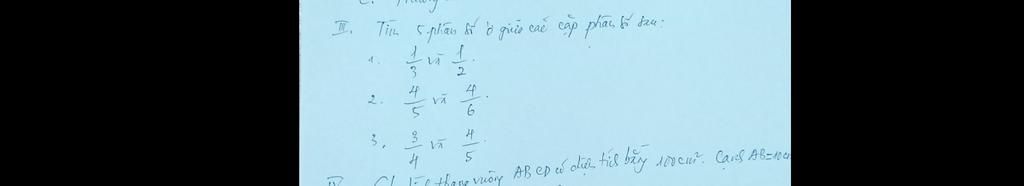 III. Tìm 5 phân số ở giữa các cặp phân số sau:
1. 1/3 và 1/2.
2. 4/5 và 4/6.
3. 3/4 và 4/5.
thang vuông ABCD có diện tích bằng 100cm². Cạnh AB=10cm